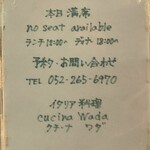 本日 満席
no seat available
ランチ 12:00〜 ディナー 18:00〜
予約・お問い合わせ
TEL 052-265-6970
イタリア料理
cucina Wada
クチーナ ワダ